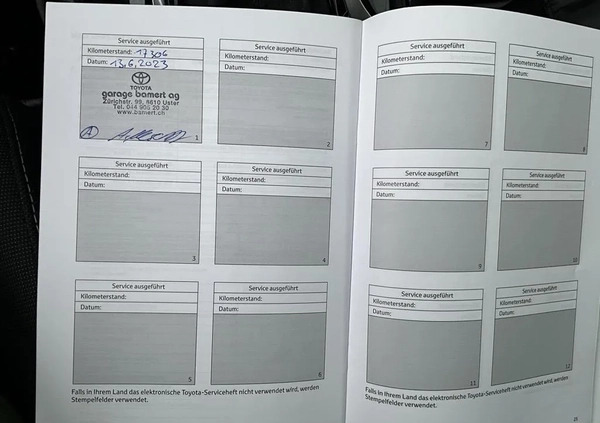 Service ausgeführt
Kilometerstand: 17306
Datum: 13.6.2023
TOYOTA
garage bamert ag
Zürichstr. 99, 8610 Uster
Tel. 044 905 20 30
www.bamert.ch
A
1
Service ausgeführt
Kilometerstand:
Datum:
2
Service ausgeführt
Kilometerstand:
Datum:
3
Service ausgeführt
Kilometerstand:
Datum:
4
Service ausgeführt
Kilometerstand:
Datum:
5
Service ausgeführt
Kilometerstand:
Datum:
6
Falls in Ihrem Land das elektronische Toyota-Serviceheft nicht verwendet wird, werden
Stempelfelder verwendet.
Service ausgeführt
Kilometerstand:
Datum:
7
Service ausgeführt
Kilometerstand:
Datum:
8
Service ausgeführt
Kilometerstand:
Datum:
9
Service ausgeführt
Kilometerstand:
Datum:
10
Service ausgeführt
Kilometerstand:
Datum:
11
Service ausgeführt
Kilometerstand:
Datum:
12
Falls in Ihrem Land das elektronische Toyota-Serviceheft nicht verwendet wird, werden
Stempelfelder verwendet.